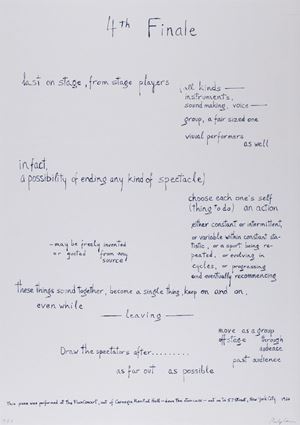 4th Finale
last on stage, from stage players
(all kinds —
instruments,
sound making, voice —
group, a fair sized one
visual performers
as well
in fact,
a possibility of ending any kind of spectacle)
choose each one's self
(thing to do) an action
either constant or intermittent,
or variable within constant sta-
tistic, or a spurt being re-
peated, or evolving in
cycles, or progressing
and eventually recommencing
- may be freely invented
or quoted from any
source)
these things sound together, become a single thing, keep on and on,
even while
— leaving —
move as a group
offstage through
audience
past audience
Draw the spectators after.........
as far out as possible
This piece was performed at the Fluxconcert, out of Carnegie Recital Hall - down the staircase - out on to 57 Street, New York City 1964